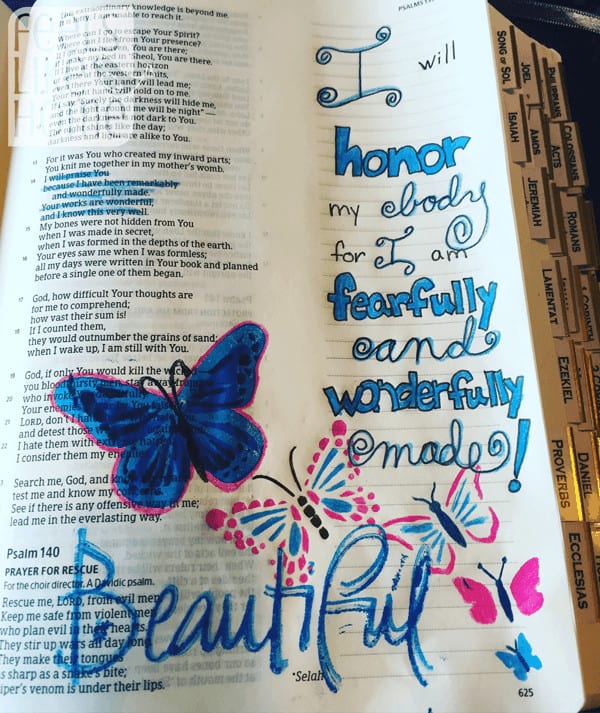 PSALMS 139
extraordinary knowledge is beyond me.
It is lofty; I am unable to reach it.
Where can I go to escape Your Spirit?
Where can I flee from Your presence?
If I go up to heaven, You are there;
if I make my bed in Sheol, You are there.
If I live at the eastern horizon
or settle at the western limits,
even there Your hand will lead me;
Your right hand will hold on to me.
If I say, "Surely the darkness will hide me,
and the light around me will be night" —
even the darkness is not dark to You.
The night shines like the day;
darkness and light are alike to You.
13 For it was You who created my inward parts;
You knit me together in my mother's womb.
14 I will praise You
because I have been remarkably
and wonderfully made.
Your works are wonderful,
and I know this very well.
15 My bones were not hidden from You
when I was made in secret,
when I was formed in the depths of the earth.
16 Your eyes saw me when I was formless;
all my days were written in Your book and planned
before a single one of them began.
17 God, how difficult Your thoughts are
for me to comprehend;
how vast their sum is!
18 If I counted them,
they would outnumber the grains of sand;
when I wake up, I am still with You.
19 God, if only You would kill the wicked
you bloodthirsty men, stay away from
20 who invoke
Your enemies
21 LORD, don't I hate
and detest those
22 I hate them with extreme
I consider them my enemies.
Search me, God, and know
test me and know my
See if there is any offensive way in me;
lead me in the everlasting way.
Psalm 140
PRAYER FOR RESCUE
For the choir director. A Davidic psalm.
Rescue me, LORD, from evil men.
Keep me safe from violent men
who plan evil in their hearts.
They stir up wars all day long.
They make their tongues
as sharp as a snake's bite;
viper's venom is under their lips.
*Selah
I will
honor
my body
for I am
fearfully
and
wonderfully
made!
Beautiful
625
SONG OF SOL
ISAIAH
JEREMIAH
LAMENTAT
EZEKIEL
DANIEL
PROVERBS
ECCLESIAS
JOEL
AMOS
ACTS
ROMANS
PHILIPPIANS
COLOSSIANS